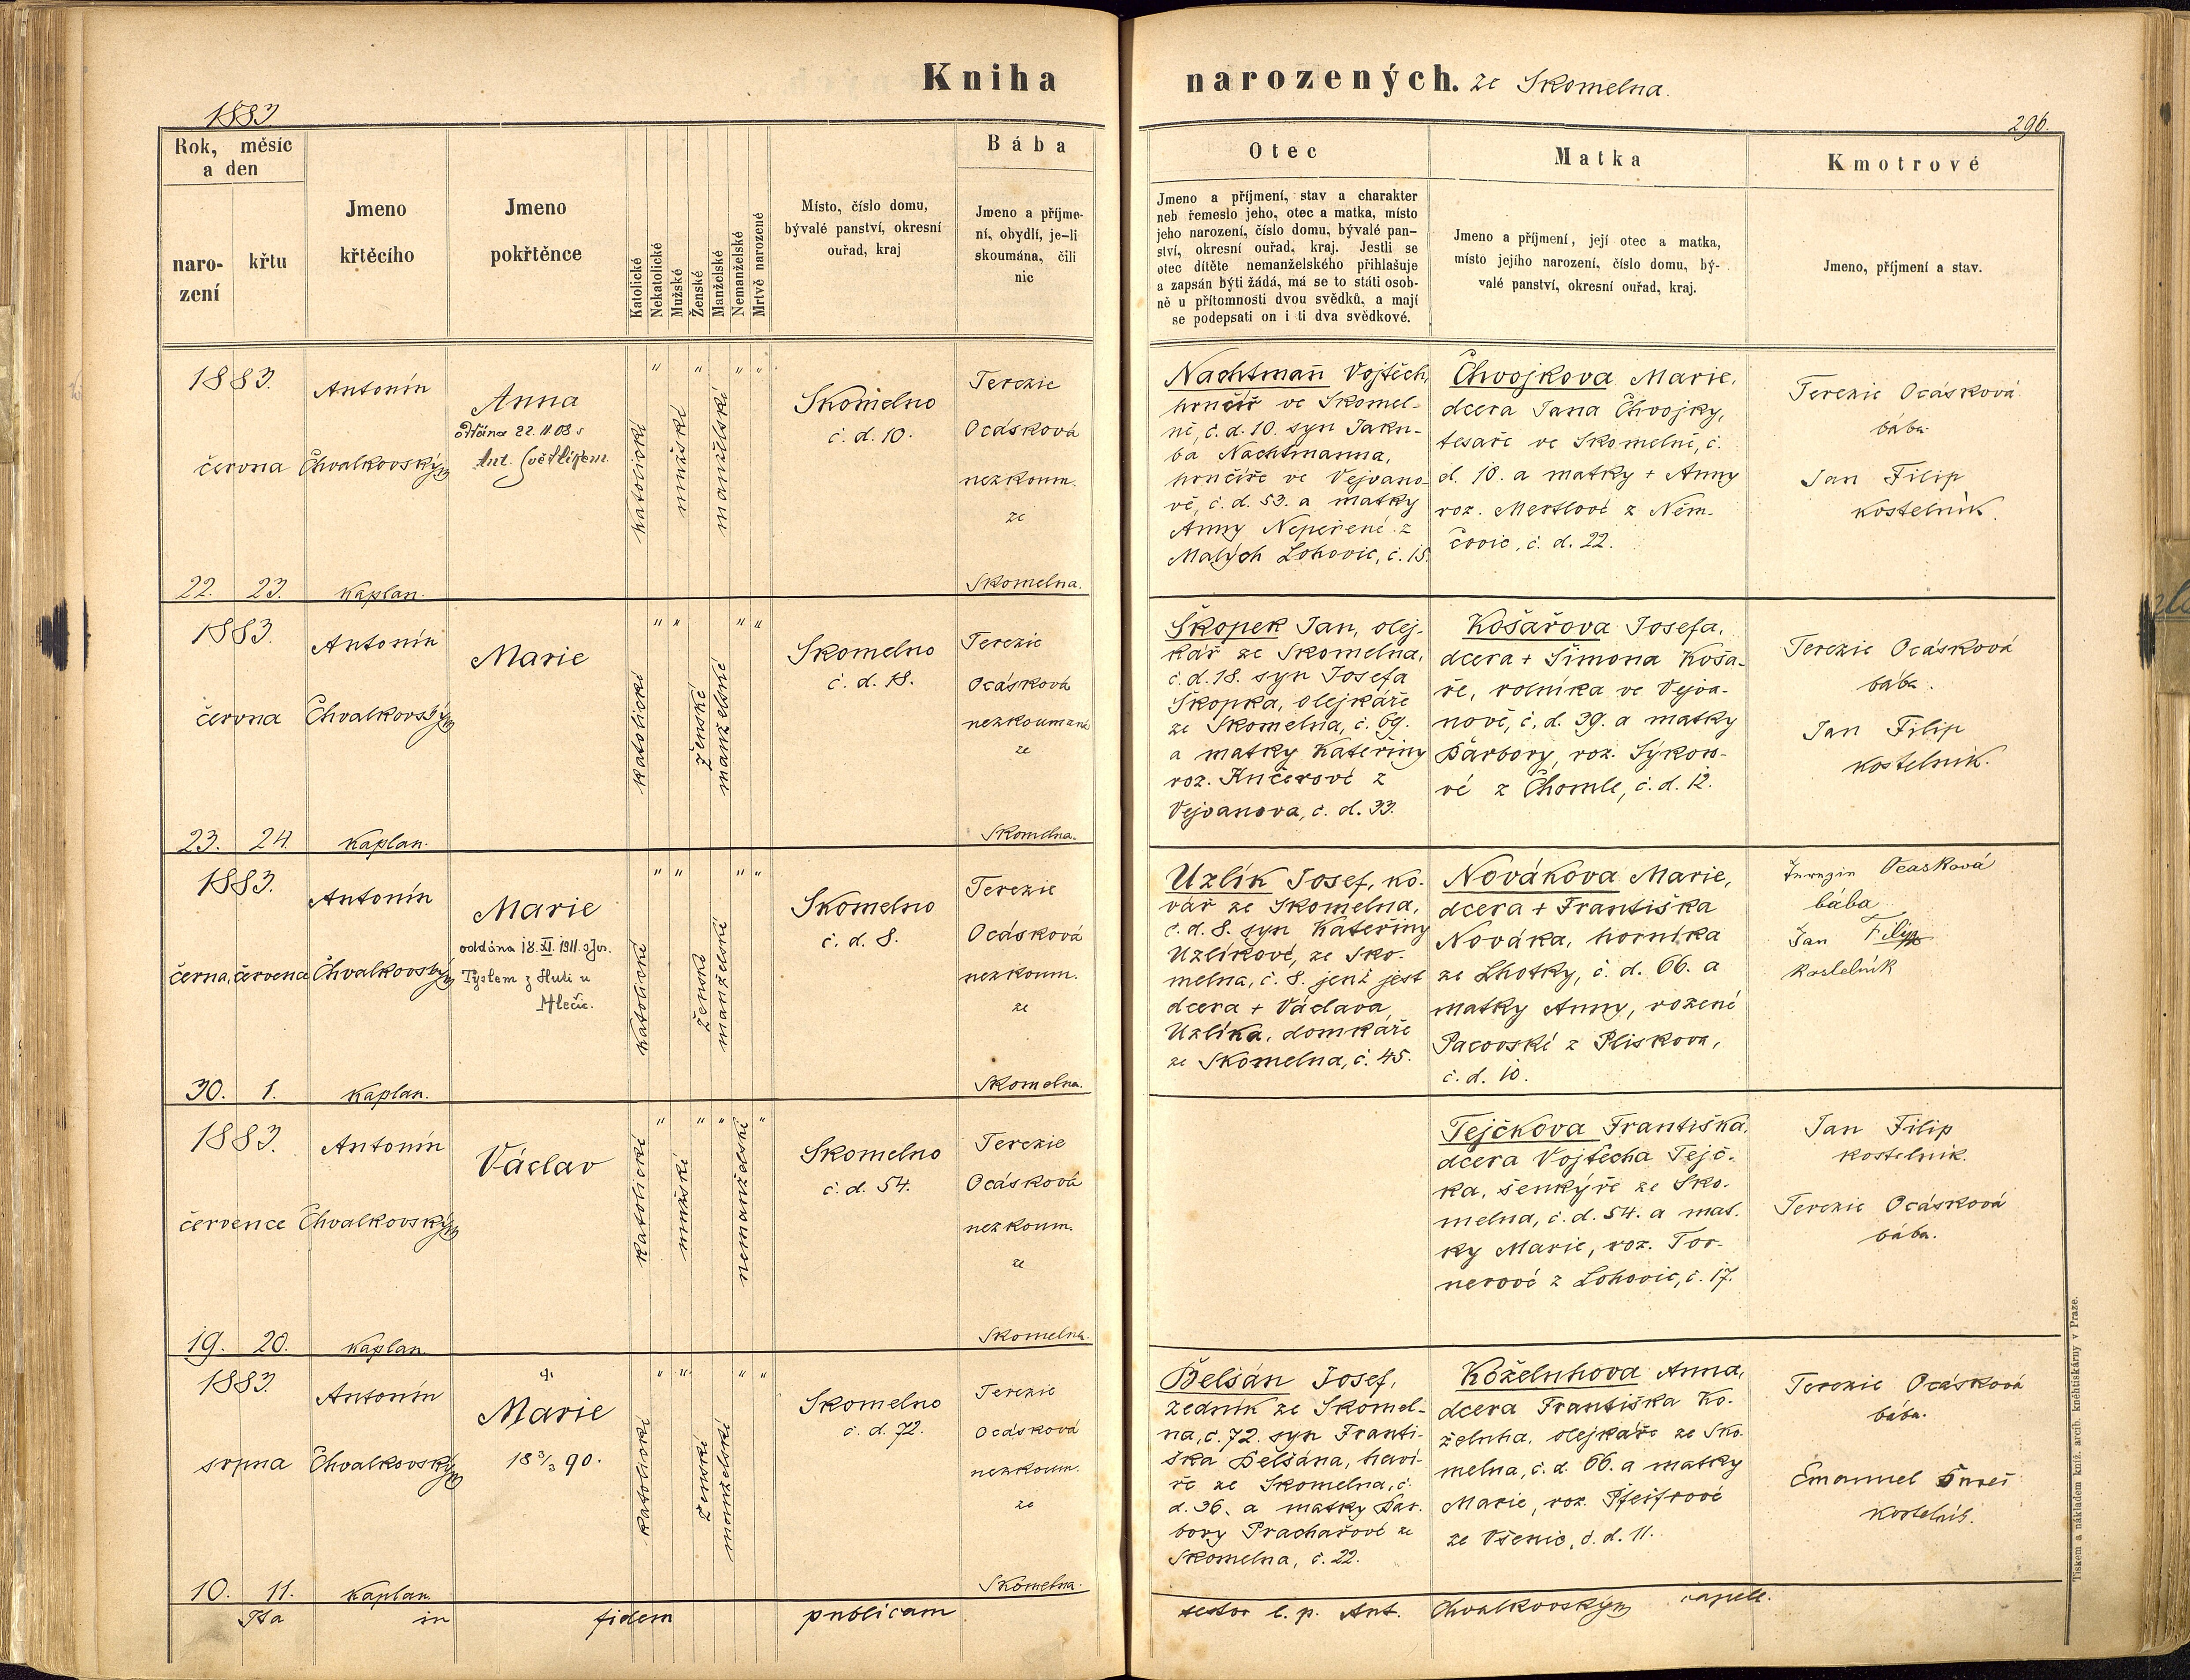 Kniha narozených. ze Skomelna.
1883
296.
Rok, měsíc a den
narození
křtu
Jmeno křtěcího
Jmeno pokřtěnce
Katolické
Nekatolické
Mužské
Ženské
Manželské
Nemanželské
Mrtvě narozené
Místo, číslo domu,
bývalé panství, okresní
ouřad, kraj
Bába
Jmeno a příjme-
ní, obydlí, je-li
skoumána, čili
nic
Otec
Jmeno a příjmení, stav a charakter
neb řemeslo jeho, otec a matka, místo
jeho narození, číslo domu, bývalé pan-
ství, okresní ouřad, kraj. Jestli se
otec dítěte nemanželského přihlašuje
a zapsán býti žádá, má se to státi osob-
ně u přítomnosti dvou svědků, a mají
se podepsati on i ti dva svědkové.
Matka
Jmeno a příjmení, její otec a matka,
místo jejího narození, číslo domu, bý-
valé panství, okresní ouřad, kraj.
Kmotrové
Jmeno, příjmení a stav.
1883.
června
22. 23.
Antonín
Chvalkovský
kaplan.
Anna
oddána 22.11 08 s
Ant. Světlíkem.
katolické
mužské
manželské
Skomelno
č. d. 10.
Terezie
Ocásková
nezkoum.
ze
Skomelna.
Nachtmann Vojtěch,
hrnčíř ve Skomel-
ně, č. d. 10. syn Jaku-
ba Nachtmanna,
hrnčíře ve Vejvano-
vě, č. d. 53. a matky
Anny Nepeřené z
Malých Lohovic, č. 15.
Chvojkova Marie,
dcera Jana Chvojky,
tesaře ve Skomelně, č.
d. 10. a matky + Anny
roz. Mertlové z Něm-
čovic, č. d. 22.
Terezie Ocásková
bába.
Jan Filip
kostelník.
1883.
června
23. 24.
Antonín
Chvalkovský
kaplan.
Marie
katolické
ženské
manželské
Skomelno
č. d. 18.
Terezie
Ocásková
nezkoumaná
ze
Skomelna.
Škopek Jan, olej-
kář ze Skomelna,
č. d. 18. syn Josefa
Škopka, olejkáře
ze Skomelna, č. 69.
a matky Kateřiny
roz. Kučerové z
Vejvanova, č. d. 33.
Košařova Josefa,
dcera + Šimona Koša-
ře, rolníka ve Vejva-
nově, č. d. 39. a matky
Barbory, roz. Sýkoro-
vé z Chomle, č. d. 12.
Terezie Ocásková
bába.
Jan Filip
kostelník.
1883.
črna, července
30. 1.
Antonín
Chvalkovský
kaplan.
Marie
oddána 18. XI. 1911 s Jos.
Týslem z Huti u
Hlečic.
katolické
ženské
manželské
Skomelno
č. d. 8.
Terezie
Ocásková
nezkoum.
ze
Skomelna.
Uzlík Josef, ko-
vář ze Skomelna,
č. d. 8. syn Kateřiny
Uzlíkové, ze Sko-
melna, č. 8. jenž jest
dcera + Václava
Uzlíka, domkáře
ze Skomelna, č. 45.
Novákova Marie,
dcera + Františka
Nováka, horníka
ze Lhotky, č. d. 66. a
matky Anny, rozené
Pacovské z Pliskova,
č. d. 10.
Ocasková
bába
Jan Filip
kostelník
1883.
července
19. 20.
Antonín
Chvalkovský
kaplan.
Václav
katolické
mužské
nemanželské
Skomelno
č. d. 54.
Terezie
Ocásková
nezkoum.
ze
Skomelna.
Tejčkova Františka,
dcera Vojtěcha Tejč-
ka, šenkýře ze Sko-
melna, č. d. 54. a mat-
ky Marie, roz. Tor-
nerové z Lohovic, č. 17.
Jan Filip
kostelník.
Terezie Ocásková
bába.
1883.
srpna
10. 11.
Antonín
Chvalkovský
kaplan.
Marie
18 3/3 90.
katolické
ženské
manželské
Skomelno
č. d. 72.
Terezie
Ocásková
nezkoum.
ze
Skomelna.
Belšán Josef,
zedník ze Skomel-
na, č. 72. syn Franti-
ška Belšána, haví-
ře ze Skomelna, č.
d. 36. a matky Bar-
bory Prachařové ze
Skomelna, č. 22.
Koželuhova Anna,
dcera Františka Ko-
želuha, olejkáře ze Sko-
melna, č. d. 66. a matky
Marie, roz. Pfeifrové
ze Všenic, č. d. 11.
Terezie Ocásková
bába.
Emanuel
kostelník.
Ita in fidem publicam testor l. p. Ant. Chvalkovský capell.
Tiskem a nákladem kníž. arcib. kněhtiskárny v Praze.